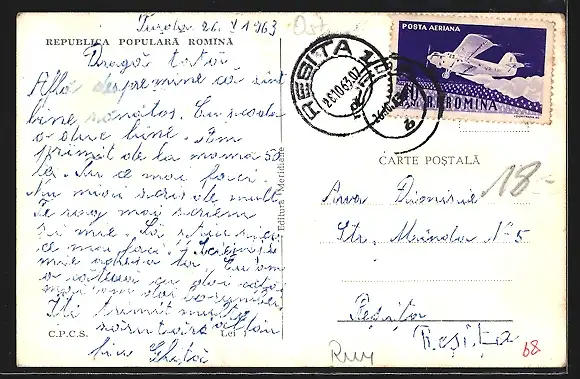 Turda 26. X 1963
REPUBLICA POPULARĂ ROMÎNĂ
Dragă tată
Află despre mine că sînt
bine sănătos. Cu scoala
o duc bine. Am
primit de la mama 50
lei. Tu ce mai faci.
Nu mai scris de mult.
Te rog mai scriem
si mie. Sa stiu si eu
ce mai faci.
mie adresa ta. Eu am
o
Iti trimit multe
sărutări
C.P.C.S.
Lei 1
Editura Meridiane
POSTA AERIANA
40
BANI R.P.ROMINA
RESITA 1
26.10.63.07
CARTE POȘTALĂ
18.-
Arva Dionisie
Str. Mîndra N° 5
Reșița
Resita
Rum
68